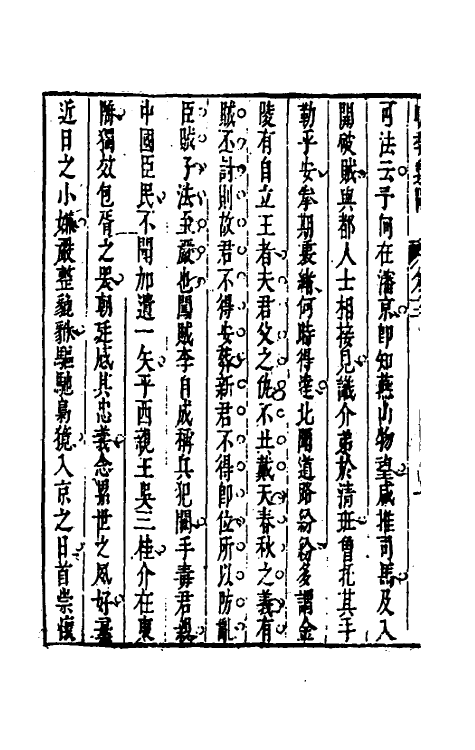 可法云予向在瀋京即知燕山物望咸推司馬及入
關破賊與都人士相接見識介弟於清班曾托其手
勒平安拳期裏緒何時得達比聞道路紛紛多謂金
陵有自立王者夫君父之仇不共戴天春秋之義有
賊不討則故君不得安葬新君不得即位所以防亂
臣賊子法至嚴也闖賊李自成稱兵犯闕手毒君親
中國臣民不聞加遺一矢平西親王吳三桂介在東
陲獨效包胥之哭朝廷感其忠義念累世之夙好棄
近日之小嫌嚴整貔貅驅馳梟獍入京之日首崇懷